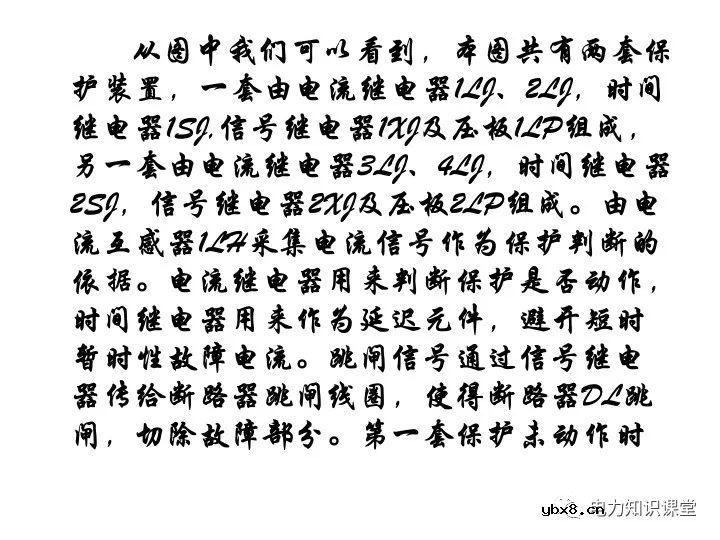 从图中我们可以看到，本图共有两套保
护装置，一套由电流继电器1LJ、2LJ，时间
继电器1SJ,信号继电器1XJ及压板1LP组成，
另一套由电流继电器3LJ、4LJ，时间继电器
2SJ，信号继电器2XJ及压板2LP组成。由电
流互感器1LH采集电流信号作为保护判断的
依据。电流继电器用来判断保护是否动作，
时间继电器用来作为延迟元件，避开短时
暂时性故障电流。跳闸信号通过信号继电
器传给断路器跳闸线圈，使得断路器DL跳
闸，切除故障部分。第一套保护未动作时
电力知识课堂
ybx8.cn